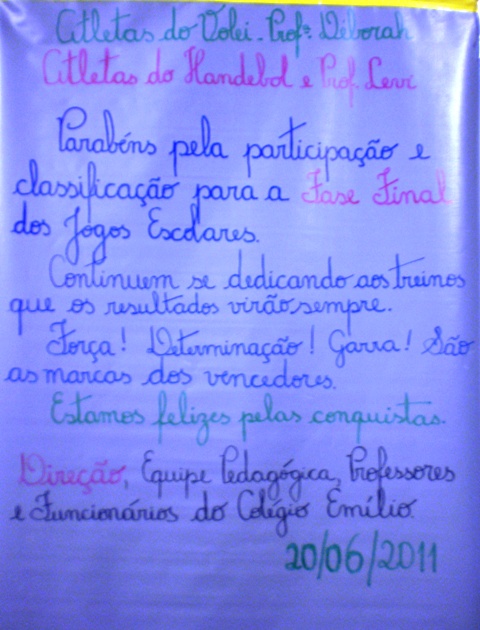 Atletas do Volei - Profª. Déborah
Atletas do Handebol e Prof. Levi
Parabéns pela participação e
classificação para a Fase Final
dos Jogos Escolares.
Continuem se dedicando aos treinos
que os resultados virão sempre.
Força! Determinação! Garra! São
as marcas dos vencedores.
Estamos felizes pelas conquistas.
Direção, Equipe Pedagógica, Professores
e Funcionários do Colégio Emílio.
20/06/2011